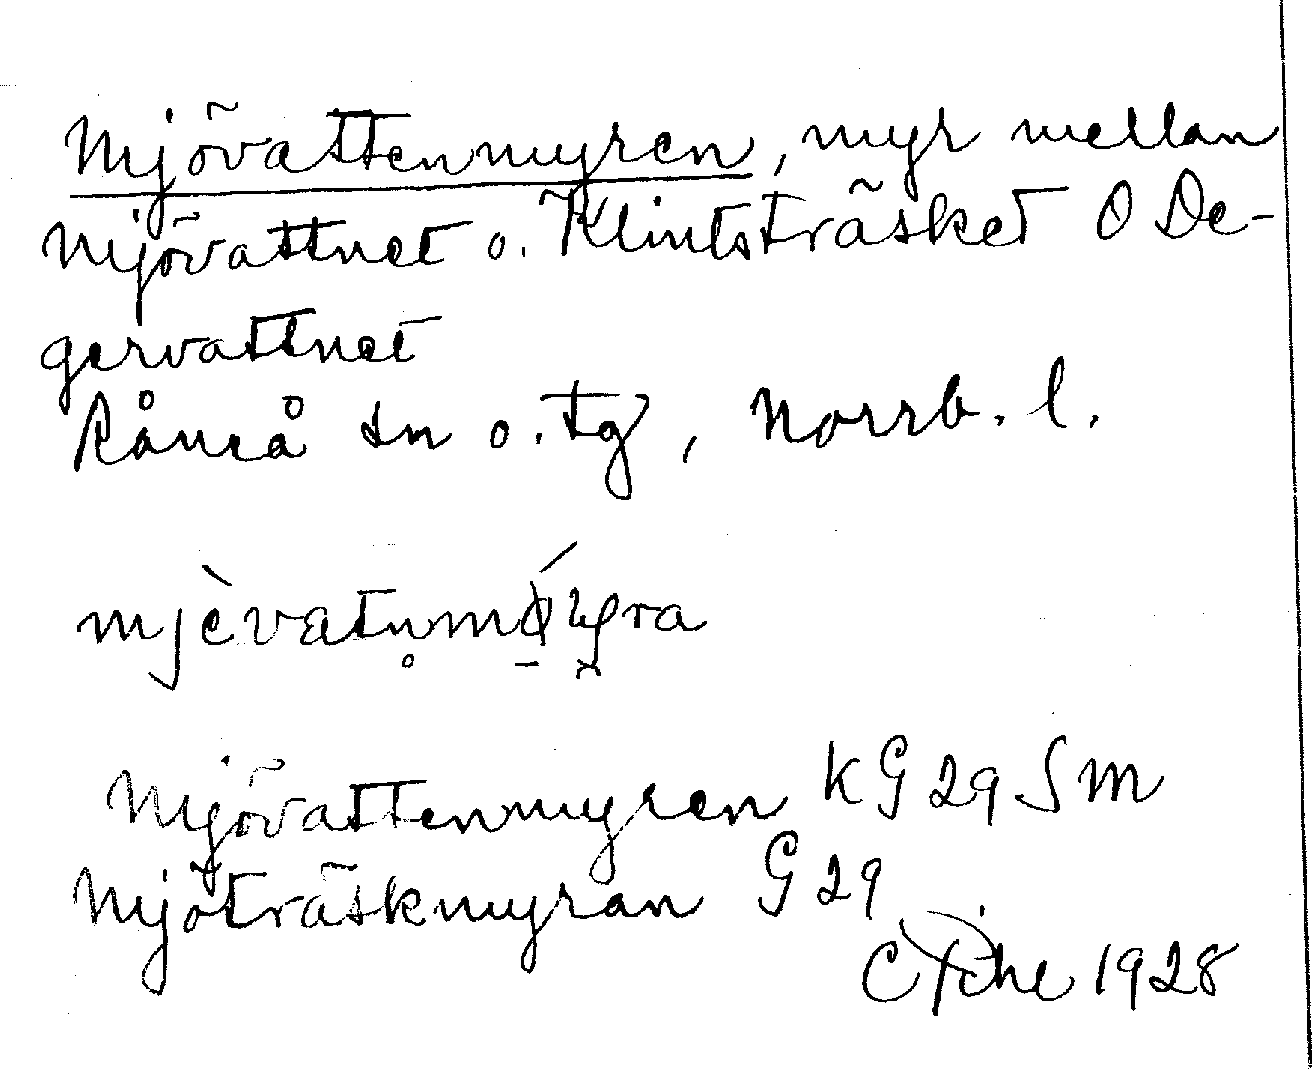 Mjövattenmyren, myr mellan
Mjövattnet o. Klintsträsket O De-
gervattnet
Råneå sn o. tg, Norrb. l.
mjèvatn̥mǿyra
Mjövattenmyren KG 29 SM
Mjöträskmyran G 29
C Pihl 1928